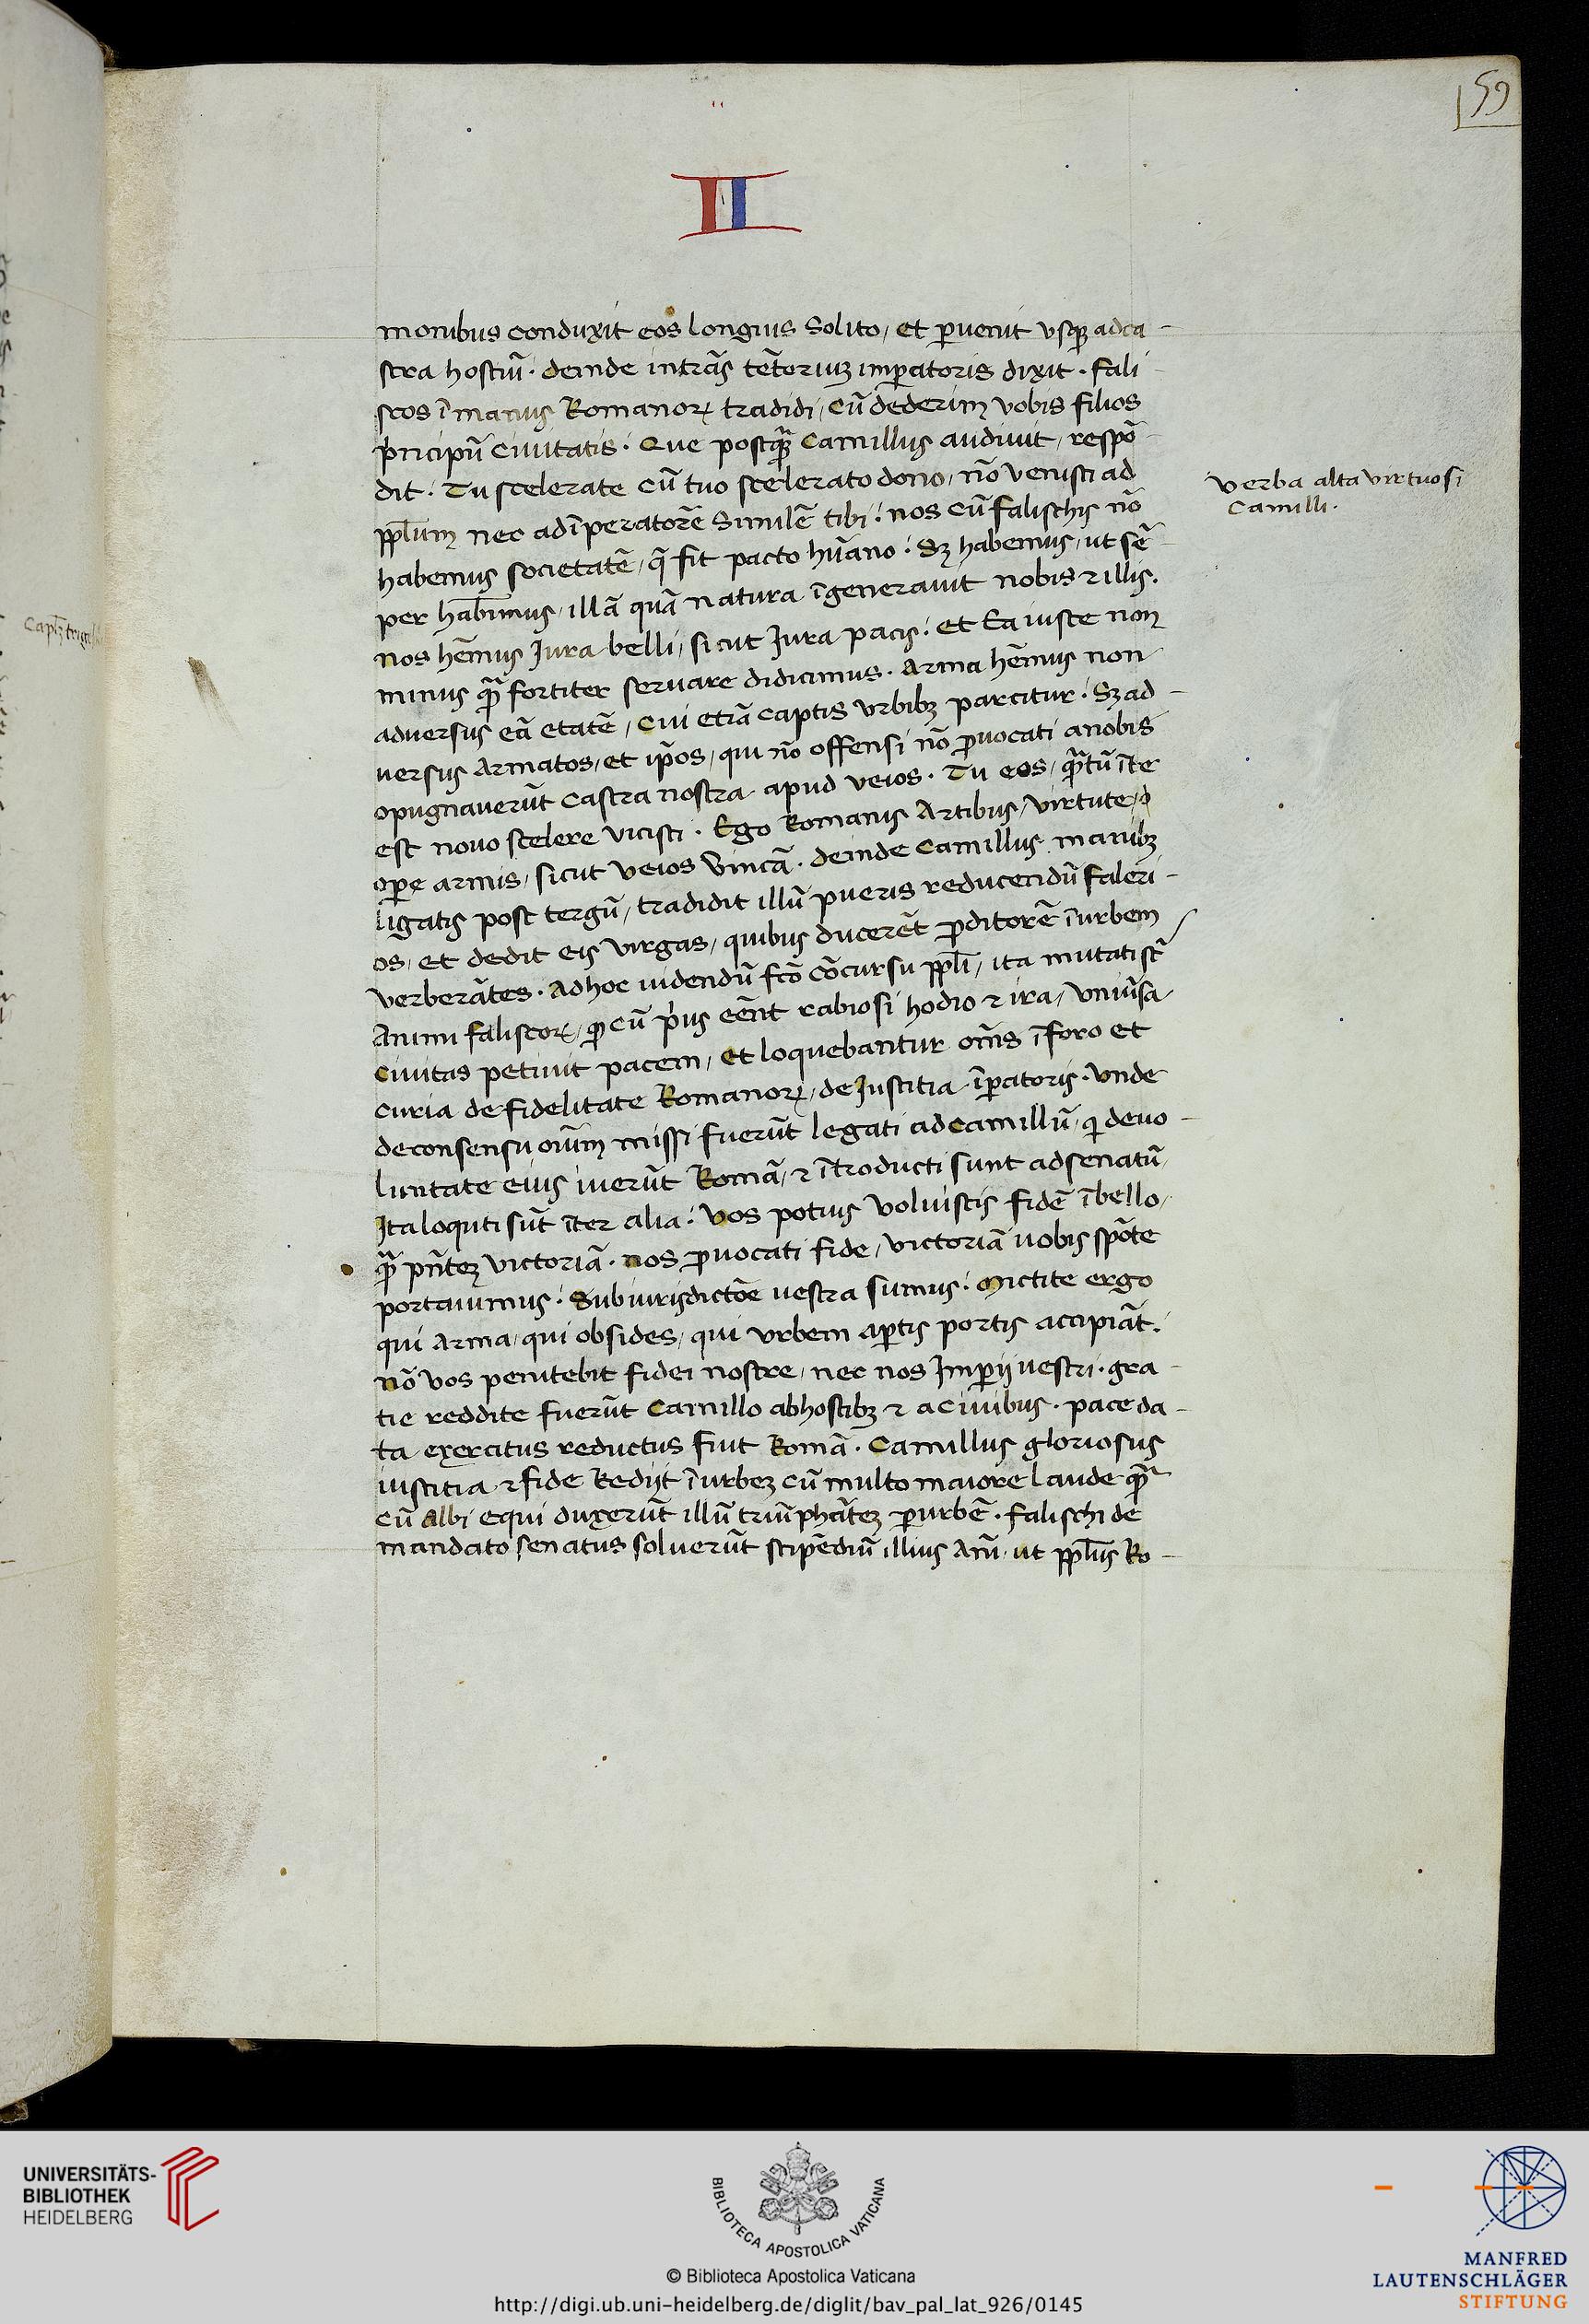 59
II
monibus conduxit eos longius solito, et ꝑuenit vsqꝫ adca-
stra hostiū. deinde intrās tētoriuꝫ imꝑatoris dixit. fali
scos ī manus Romanoꝝ tradidi, cū dederim vobis filios
pncipū Ciuitatis. Que postqᷓꝫ Camillus audiuit, respō
dit. Tu scelerate cū tuo scelerato dono, nō venisti ad
pplum nec adīperatorē similē tibi. nos cū falischis nō
habemus societatē, q̄ fit pacto huāno. Sꝫ habemus, ut sē
per habimus, illā quā natura īgenerauit nobis ⁊ illis.
nos hēmus Jura belli, sicut Jura pacis. et Ea iuste non
minus qᷓ fortiter seruare didicimus. Arma hēmus non
aduersus eā etatē, cui etiā captis vrbibꝫ parcitur. Sꝫ ad-
uersus armatos, et ip̄os, qui nō offensi nō ꝓuocati anobis
opugnauerūt castra nostra apud veios. Tu eos, qᷓtū īte
est nouo scelere vicisti. Ego Romanis Artibus, virtute,
oꝑe armis, sicut veios vincā. deinde Camillus manibꝫ
ligatis post tergū, tradidit illū pueris reducendū faleri-
os, et dedit eis virgas, quibus ducerēt ꝓditorē īurbem
verberātes. Adhoc uidendū fcō cōcursu ppli, ita mutati st̄
Animi faliscoꝝ, ꝙ cū prius eēnt rabiosi hodio ⁊ ira, vniūsa
ciuitas petiuit pacem, et loquebantur om̄s ī foro et
curia de fidelitate Romanoꝝ, de Justitia īꝑatoris. vnde
deconsensu oīum missi fuerūt legati adcamillū, qi deuo-
luntate eius iuerūt Romā, ⁊ ītroducti sunt adsenatū,
Ita loquti sūt īter alia. vos potius voluistis fidē ībello,
qᷓ pn̄teꝫ victoriā. nos ꝓuocati fide, victoriā uobis spōte
portauimus. Sub iurisdictōe uestra sumus. Mictite ergo
qui arma, qui obsides, qui vrbem aꝑtis portis accipiāt.
nō vos penitebit fidei nostre, nec nos Imꝑij uestri. gra-
tie reddite fuerūt Camillo abhostibꝫ ⁊ aciuibus. pace da-
ta exercitus reductus fuit Romā. Camillus gloriosus
iustitia ⁊ fide Redijt īurbeꝫ cū multo maiore laude qᷓ
cū albi equi duxerūt illū triūphāteꝫ ꝑurbē. falischi de
mandato senatus soluerūt stipēdiū illius Anī, ut pplus Ro-
verba alta virtuosi
Camilli.
UNIVERSITÄTS-
BIBLIOTHEK
HEIDELBERG
BIBLIOTECA APOSTOLICA VATICANA
© Biblioteca Apostolica Vaticana
http://digi.ub.uni-heidelberg.de/diglit/bav_pal_lat_926/0145
MANFRED
LAUTENSCHLÄGER
STIFTUNG